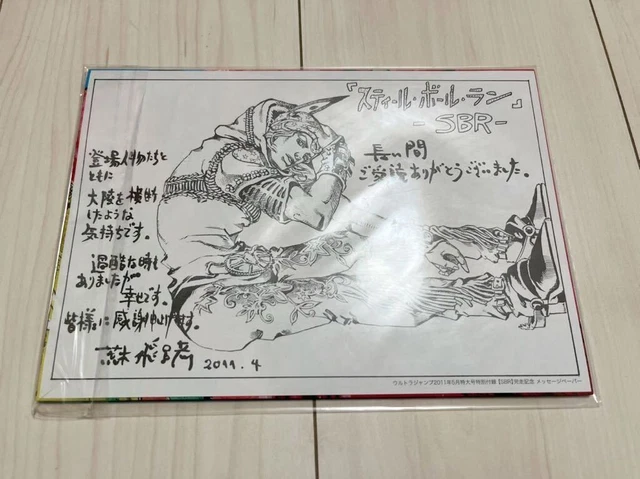 『スティール・ボール・ラン』
-SBR-
長い間
ご愛読ありがとうございました。
登場人物たちと
ともに
大陸を横断
したような
気持ちです。
過酷な時も
ありましたが
幸せです。
皆様に感謝申し上げます。
荒木飛呂彦
2011.4
ウルトラジャンプ2011年5月特大号特別付録 【SBR】完走記念 メッセージペーパー